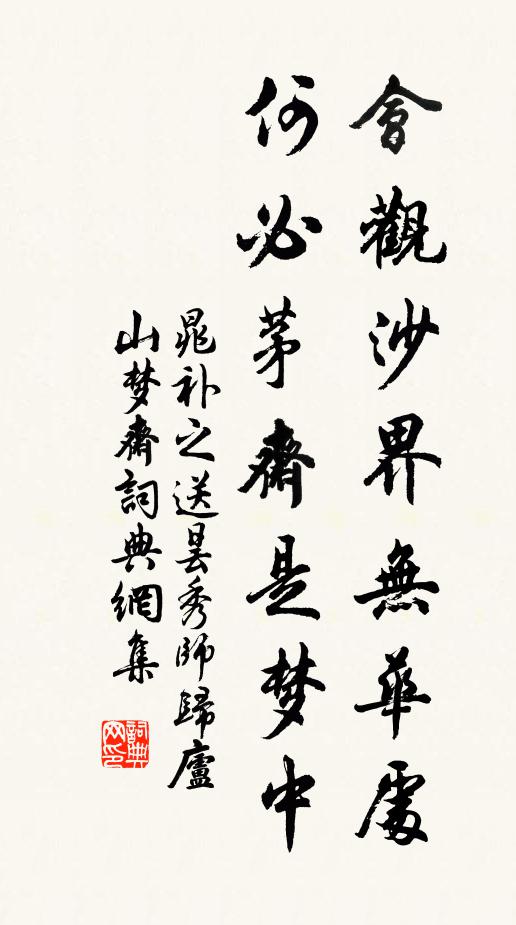 會觀沙界無華處
何必茅齋是梦中
晁补之送昙秀師歸廬
山梦齋詞典網集
詞典
网印